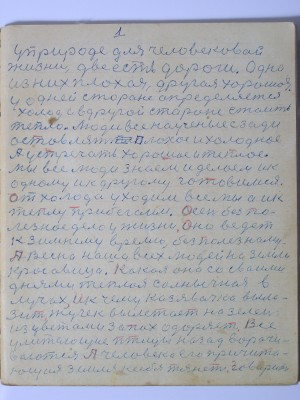 1
У природе для человековай
жизни, две есть дороги. Одна
из них плохая, другая хорошая,
у одней сторане определяется
холод а в другой стороне стоит
тепло. Люди все научены сзади
оставлят плохои холодное
А устречать хорошае и теплое.
Мы все люди знаем и делаем их
одному их другому готовимся.
От холода уходим всегда а ик
теплу прибегаем. Осень бо по-
лезное дело у жизни, Оно ведет
к Зимнему время, без полезному.
А Весна наша всех людей на земли
красавица. Какая она со своими
днями теплая солнычная в
лучах, ик чему казявка выле-
зит, жучек вылетает на зелен.
из цветами Запах одоряет, Все
улитающие птицы назад ворачи-
ваются А человека его причита-
ющая земля к себя тянет, говорить